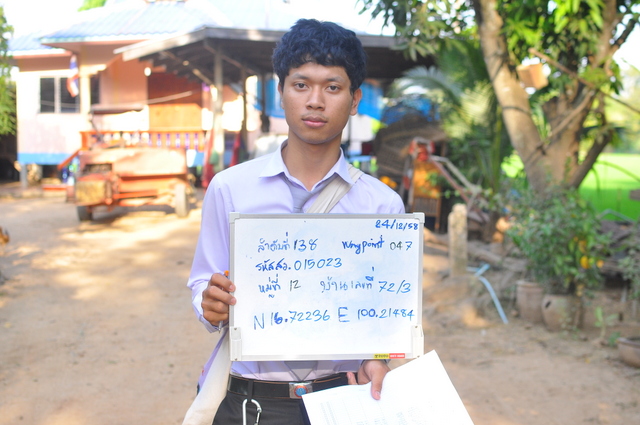 24/12/58
ลำดับที่ 138 Waypoint 047
รหัสสอ. 015023
หมู่ที่ 12 บ้านเลขที่ 72/3
N 16.72236 E 100.21484